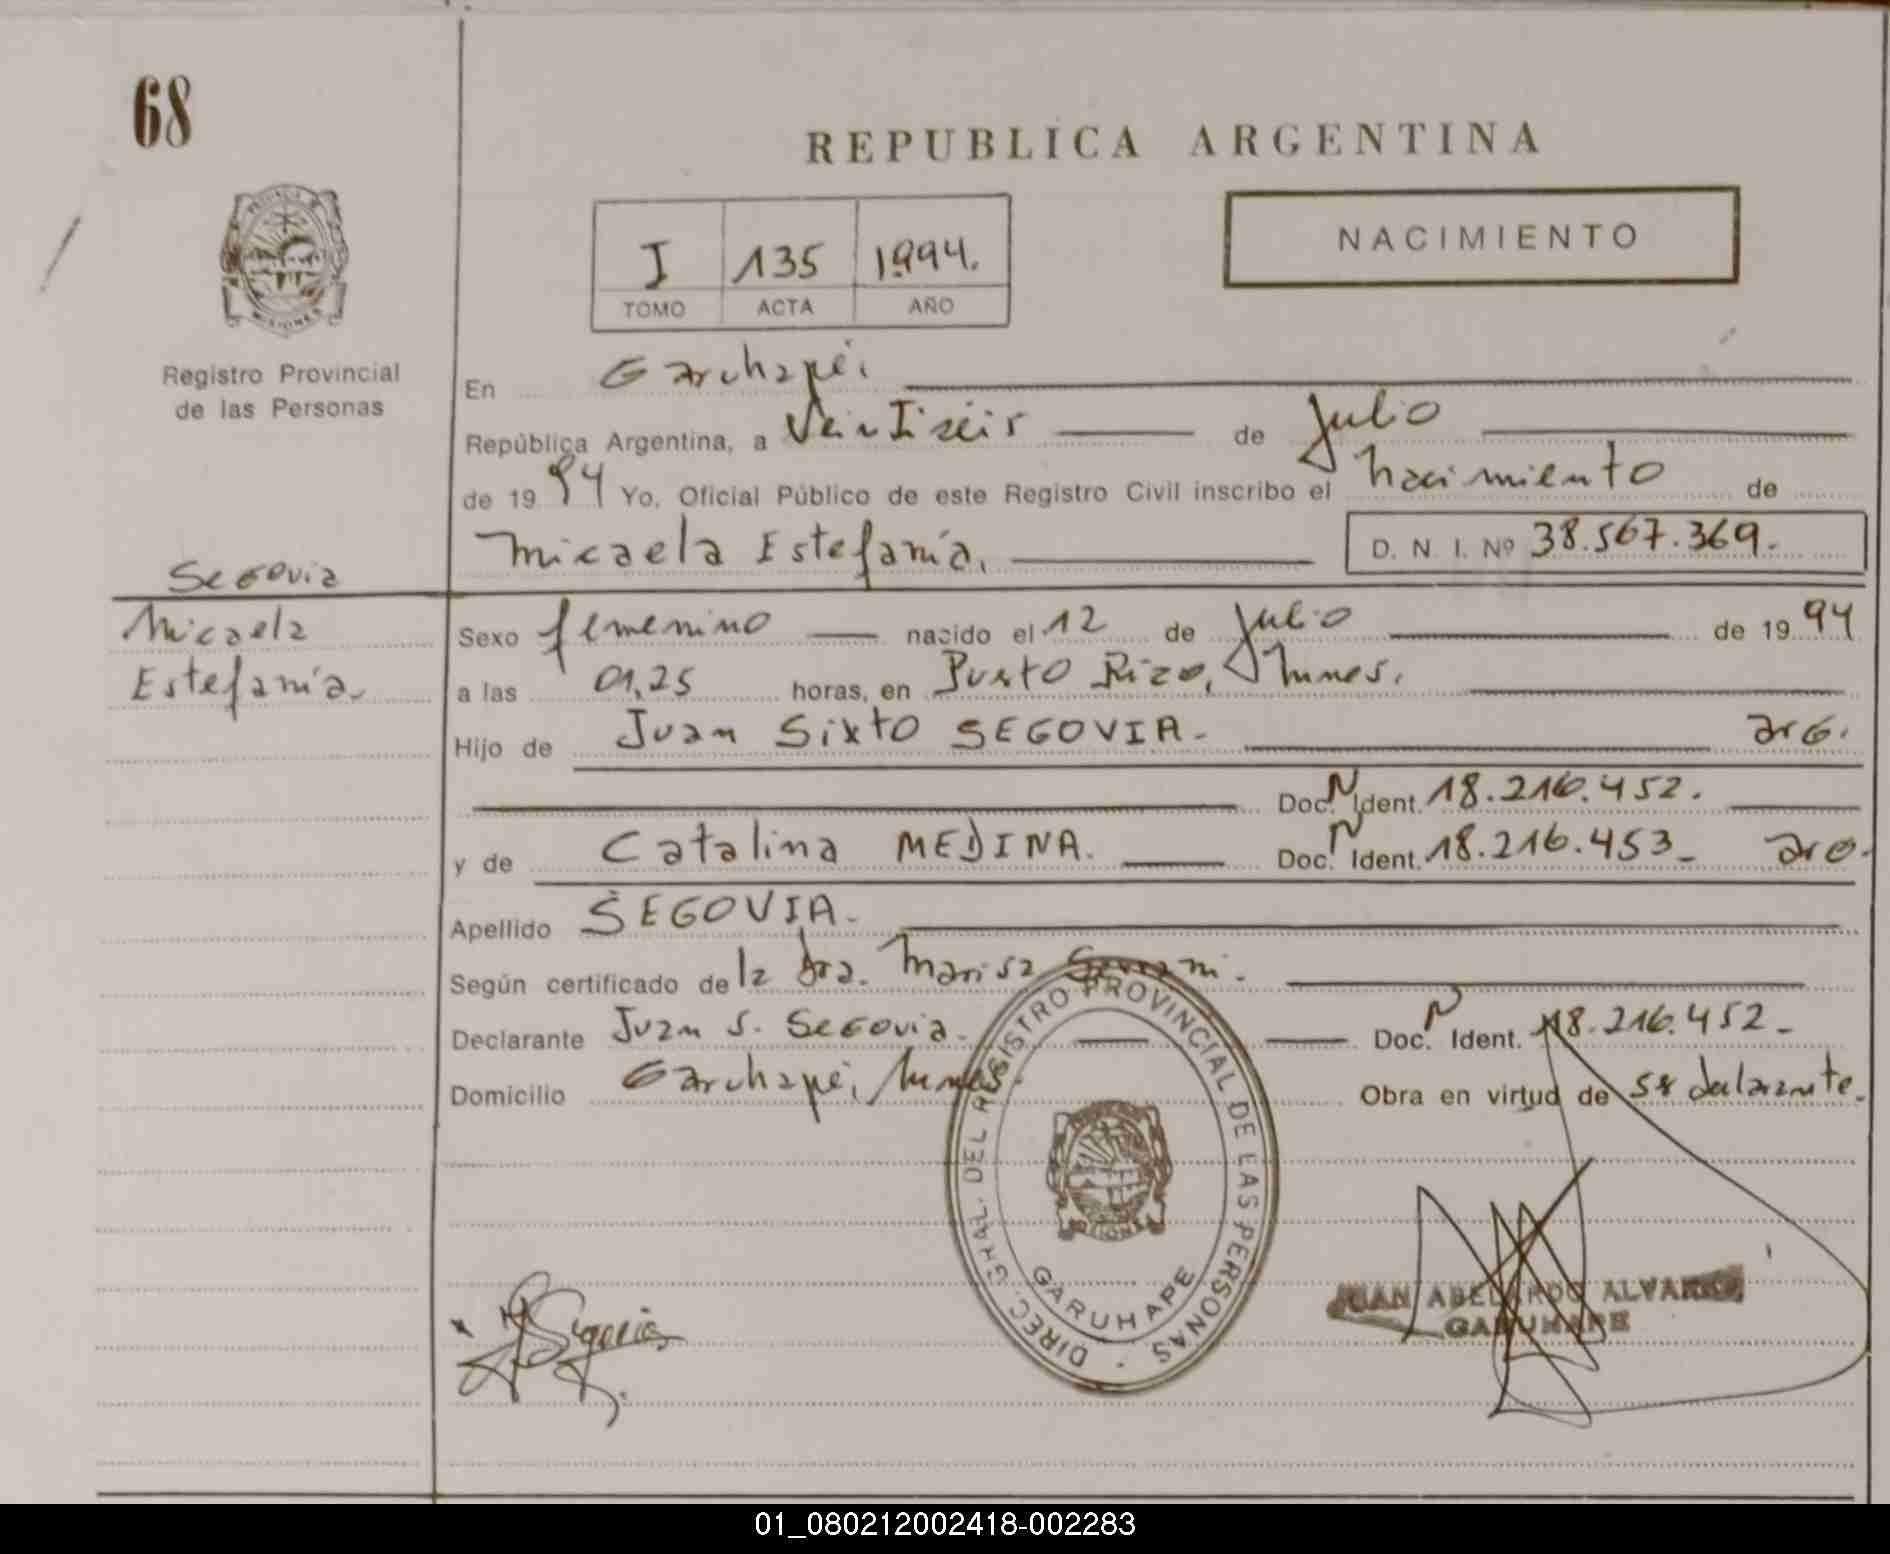 68
REPUBLICA ARGENTINA
PROVINCIA DE
MISIONES
Registro Provincial
de las Personas
I 135 1994.
TOMO ACTA AÑO
NACIMIENTO
En Garuhapé,
República Argentina, a Veintiseis de Julio
de 1994 Yo, Oficial Público de este Registro Civil inscribo el nacimiento de
Micaela Estefanía. D. N. I. Nº 38.567.369.
Segovia
Micaela
Estefanía.
Sexo femenino nacido el 12 de Julio de 1994
a las 01,25 horas, en Puerto Rico, Mnes.
Hijo de Juan Sixto SEGOVIA. arg.
Doc. N Ident. 18.216.452.
y de Catalina MEDINA. Doc. N Ident. 18.216.453_ arg.
Apellido SEGOVIA.
Según certificado de la Dra. Marisa
Declarante Juan S. Segovia. Doc. N Ident. 18.216.452_
Domicilio Garuhapé, Mnes. Obra en virtud de ss declarante.
DIREC. GRAL. DEL REGISTRO PROVINCIAL DE LAS PERSONAS -
GARUHAPE
Segovia
JUAN ABELARDO ALVAREZ
GARUHAPE
01_080212002418-002283